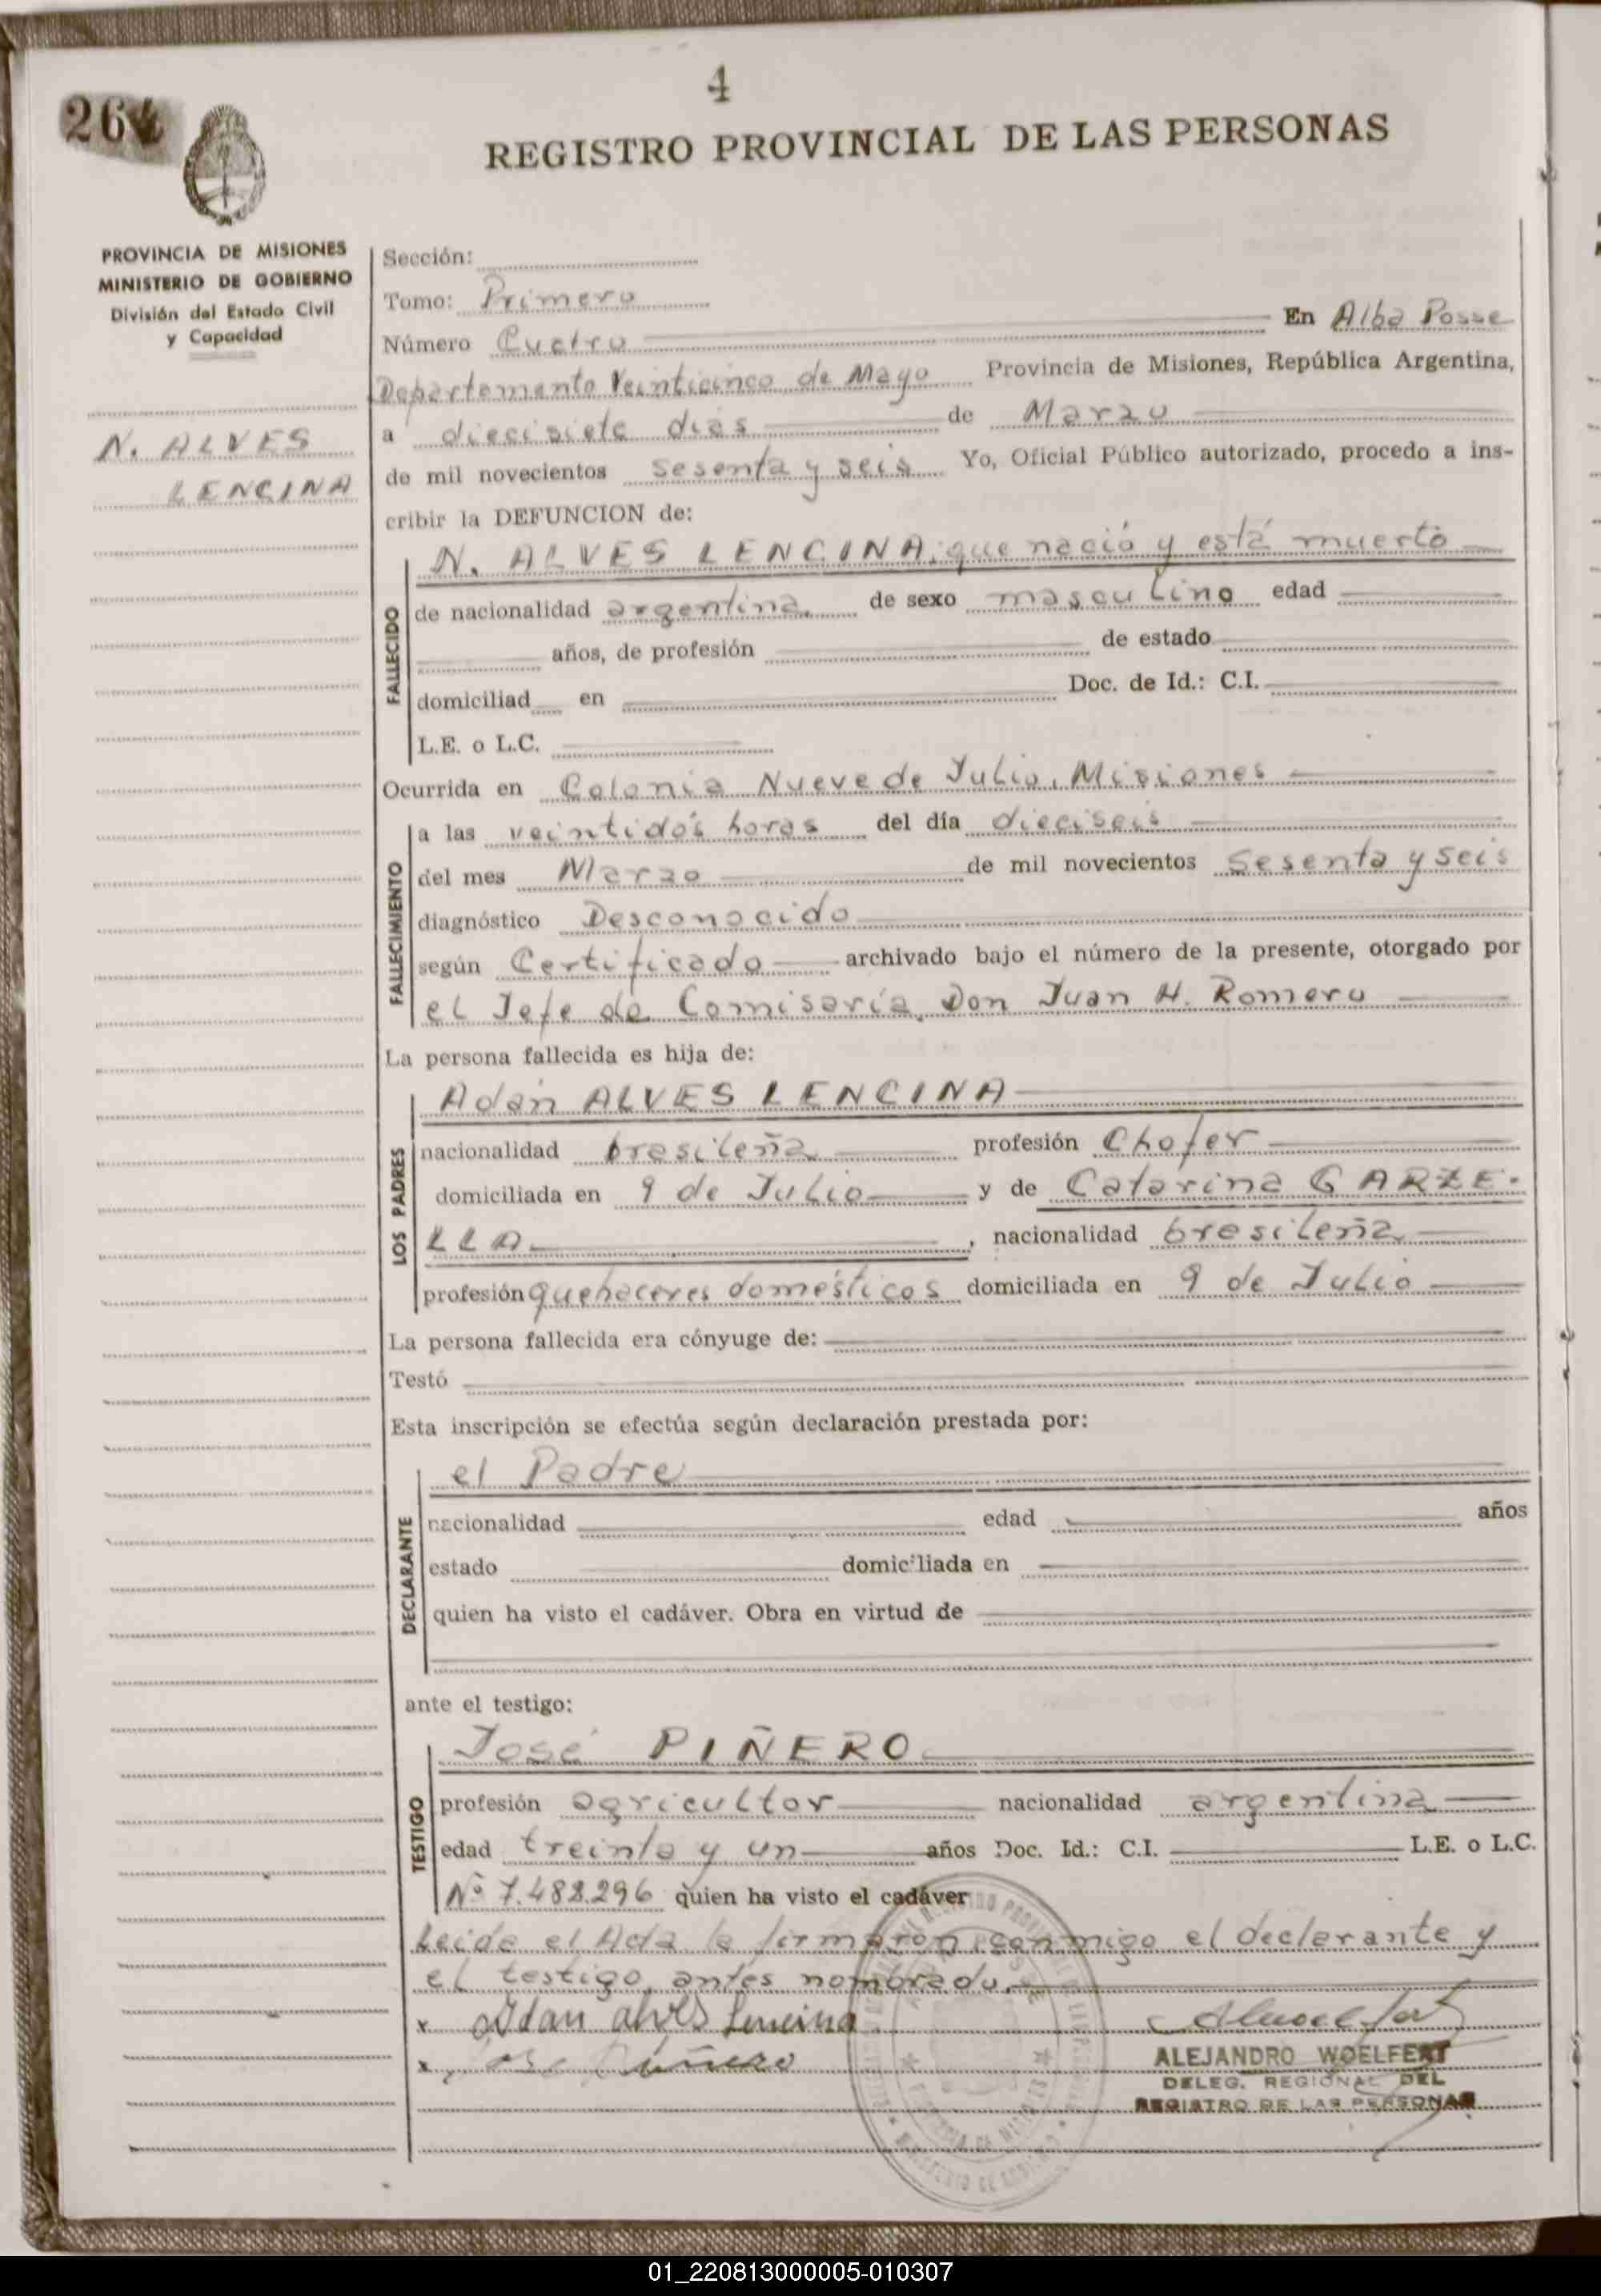 4
264
REGISTRO PROVINCIAL DE LAS PERSONAS
PROVINCIA DE MISIONES
MINISTERIO DE GOBIERNO
División del Estado Civil
y Capacidad
N. ALVES
LENCINA
Sección:
Tomo: Primero
Número Cuatro En Alba Posse
Departamento Veinticinco de Mayo Provincia de Misiones, República Argentina,
a diecisiete dias de Marzo
de mil novecientos sesenta y seis Yo, Oficial Público autorizado, procedo a ins-
cribir la DEFUNCION de:
N. ALVES LENCINA, que nació y está muerto
FALLECIDO
de nacionalidad argentina, de sexo masculino edad
años, de profesión de estado
domiciliad en Doc. de Id.: C.I.
L.E. o L.C.
Ocurrida en Colonia Nueve de Julio, Misiones
FALLECIMIENTO
a las veintidós horas del día dieciseis
del mes Marzo de mil novecientos Sesenta y seis
diagnóstico Desconocido
según Certificado archivado bajo el número de la presente, otorgado por
el Jefe de Comisaría, Don Juan H. Romero
La persona fallecida es hija de:
LOS PADRES
Adán ALVES LENCINA
nacionalidad brasileña profesión Chofer
domiciliada en 9 de Julio y de Catarina GARZE-
LLA , nacionalidad brasileña,
profesión quehaceres domésticos domiciliada en 9 de Julio
La persona fallecida era cónyuge de:
Testó
Esta inscripción se efectúa según declaración prestada por:
DECLARANTE
el Padre
nacionalidad edad años
estado domiciliada en
quien ha visto el cadáver. Obra en virtud de
ante el testigo:
TESTIGO
José PIÑERO
profesión agricultor nacionalidad argentina
edad treinta y un años Doc. Id.: C.I. L.E. o L.C.
Nº 7.488.296 quien ha visto el cadáver
Leida el Acta la firmaron conmigo el declarante y
el testigo antes nombrado.
x Adan alves Lencina
x José Piñero
ALEJANDRO WOELFERT
DELEG. REGIONAL DEL
REGISTRO DE LAS PERSONAS
01_220813000005-010307